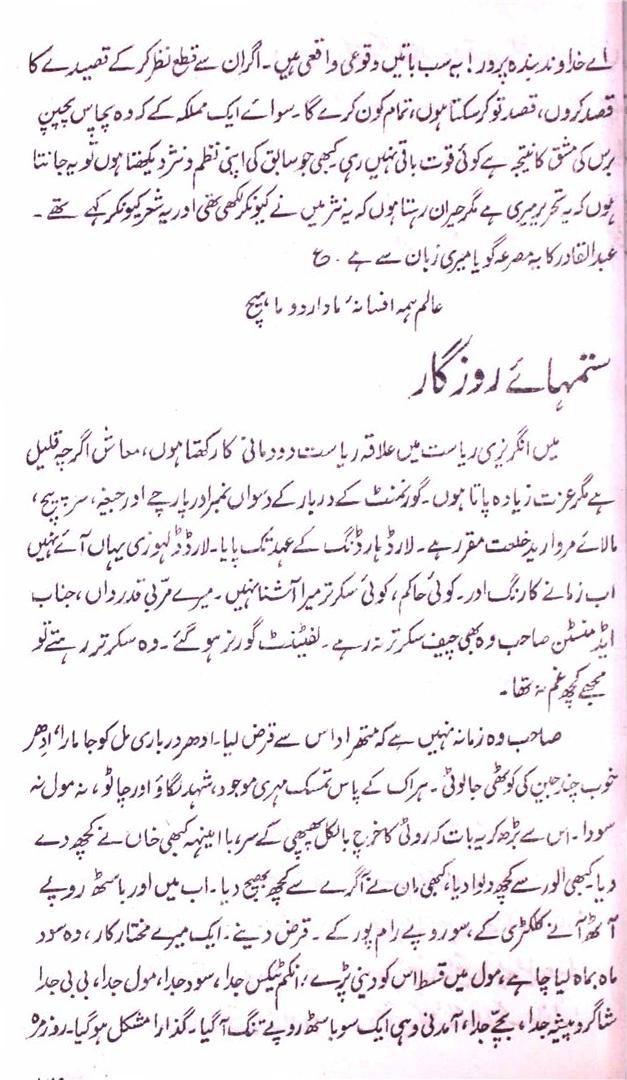 اے خداوند بندہ پرور! یہ سب باتیں وقوعی واقعی ہیں۔ اگر ان سے قطع نظر کر کے قصیدے کا
قصد کروں، قصد تو کر سکتا ہوں، تمام کون کرے گا۔ سوائے ایک ملکہ کے کہ وہ پچاس پچپن
برس کی مشق کا نتیجہ ہے کوئی قوت باقی نہیں رہی کبھی جو سابق کی اپنی نظم و نثر دیکھتا ہوں تو یہ جانتا
ہوں کہ یہ تحریر میری ہے مگر حیران رہتا ہوں کہ یہ نثر میں نے کیونکر لکھی تھی اور یہ شعر کیونکر کہے تھے۔
عبدالقادر کا یہ مصرعہ گویا میری زبان سے ہے۔ ع
عالم ہمہ افسانۂ ما دارد و ما ہیچ
ستمہائے روزگار
میں انگریزی ریاست میں علاقہ ریاست دودمانی کا رکھتا ہوں، معاش اگرچہ قلیل
ہے مگر عزت زیادہ پاتا ہوں۔ گورنمنٹ کے دربار کے دسواں نمبر اور پارچے اور جیغہ، سرپیچ،
مالائے مروارید خلعت مقرر ہے۔ لارڈ ہارڈنگ کے عہد تک پایا۔ لارڈ ڈلہوزی یہاں آئے نہیں
اب زمانے کا رنگ اور۔ کوئی حاکم، کوئی سکرتر میرا آشنا نہیں۔ میرے مربی قدرداں، جناب
ایڈمنسٹن صاحب وہ بھی چیف سکرتر نہ رہے۔ لفٹیننٹ گورنر ہو گئے۔ وہ سکرتر رہتے تو
مجھے کچھ غم نہ تھا۔
صاحب وہ زمانہ نہیں ہے کہ متھرا داس سے قرض لیا۔ ادھر درباری مل کو جا مارا، ادھر
خوب چند جین کی کوٹھی جا لوٹی۔ ہر اک کے پاس تمسک مہری موجود، شہد لگاؤ اور چاٹو، نہ مول نہ
سود۔ اس سے بڑھ کر یہ بات کہ روٹی کا خرچ بالکل پھپھی کے سر، با اینہمہ کبھی خاں نے کچھ دے
دیا کبھی الور سے کچھ دلوا دیا، کبھی ماں نے آگرے سے کچھ بھیج دیا۔ اب میں اور باسٹھ روپے
آٹھ آنے کلکٹری کے، سو روپے رام پور کے۔ قرض دینے۔ ایک میرے مختار کار، وہ سود
ماہ بماہ لیا چاہے، مول میں قسط اس کو دینی پڑے، انکم ٹیکس جدا، سود جدا، مول جدا، بی بی جدا
شاگرد پیشہ جدا، بچے جدا، آمدنی وہی ایک سو باسٹھ روپے تنگ آ گیا۔ گذارا مشکل ہو گیا۔ روزمرہ